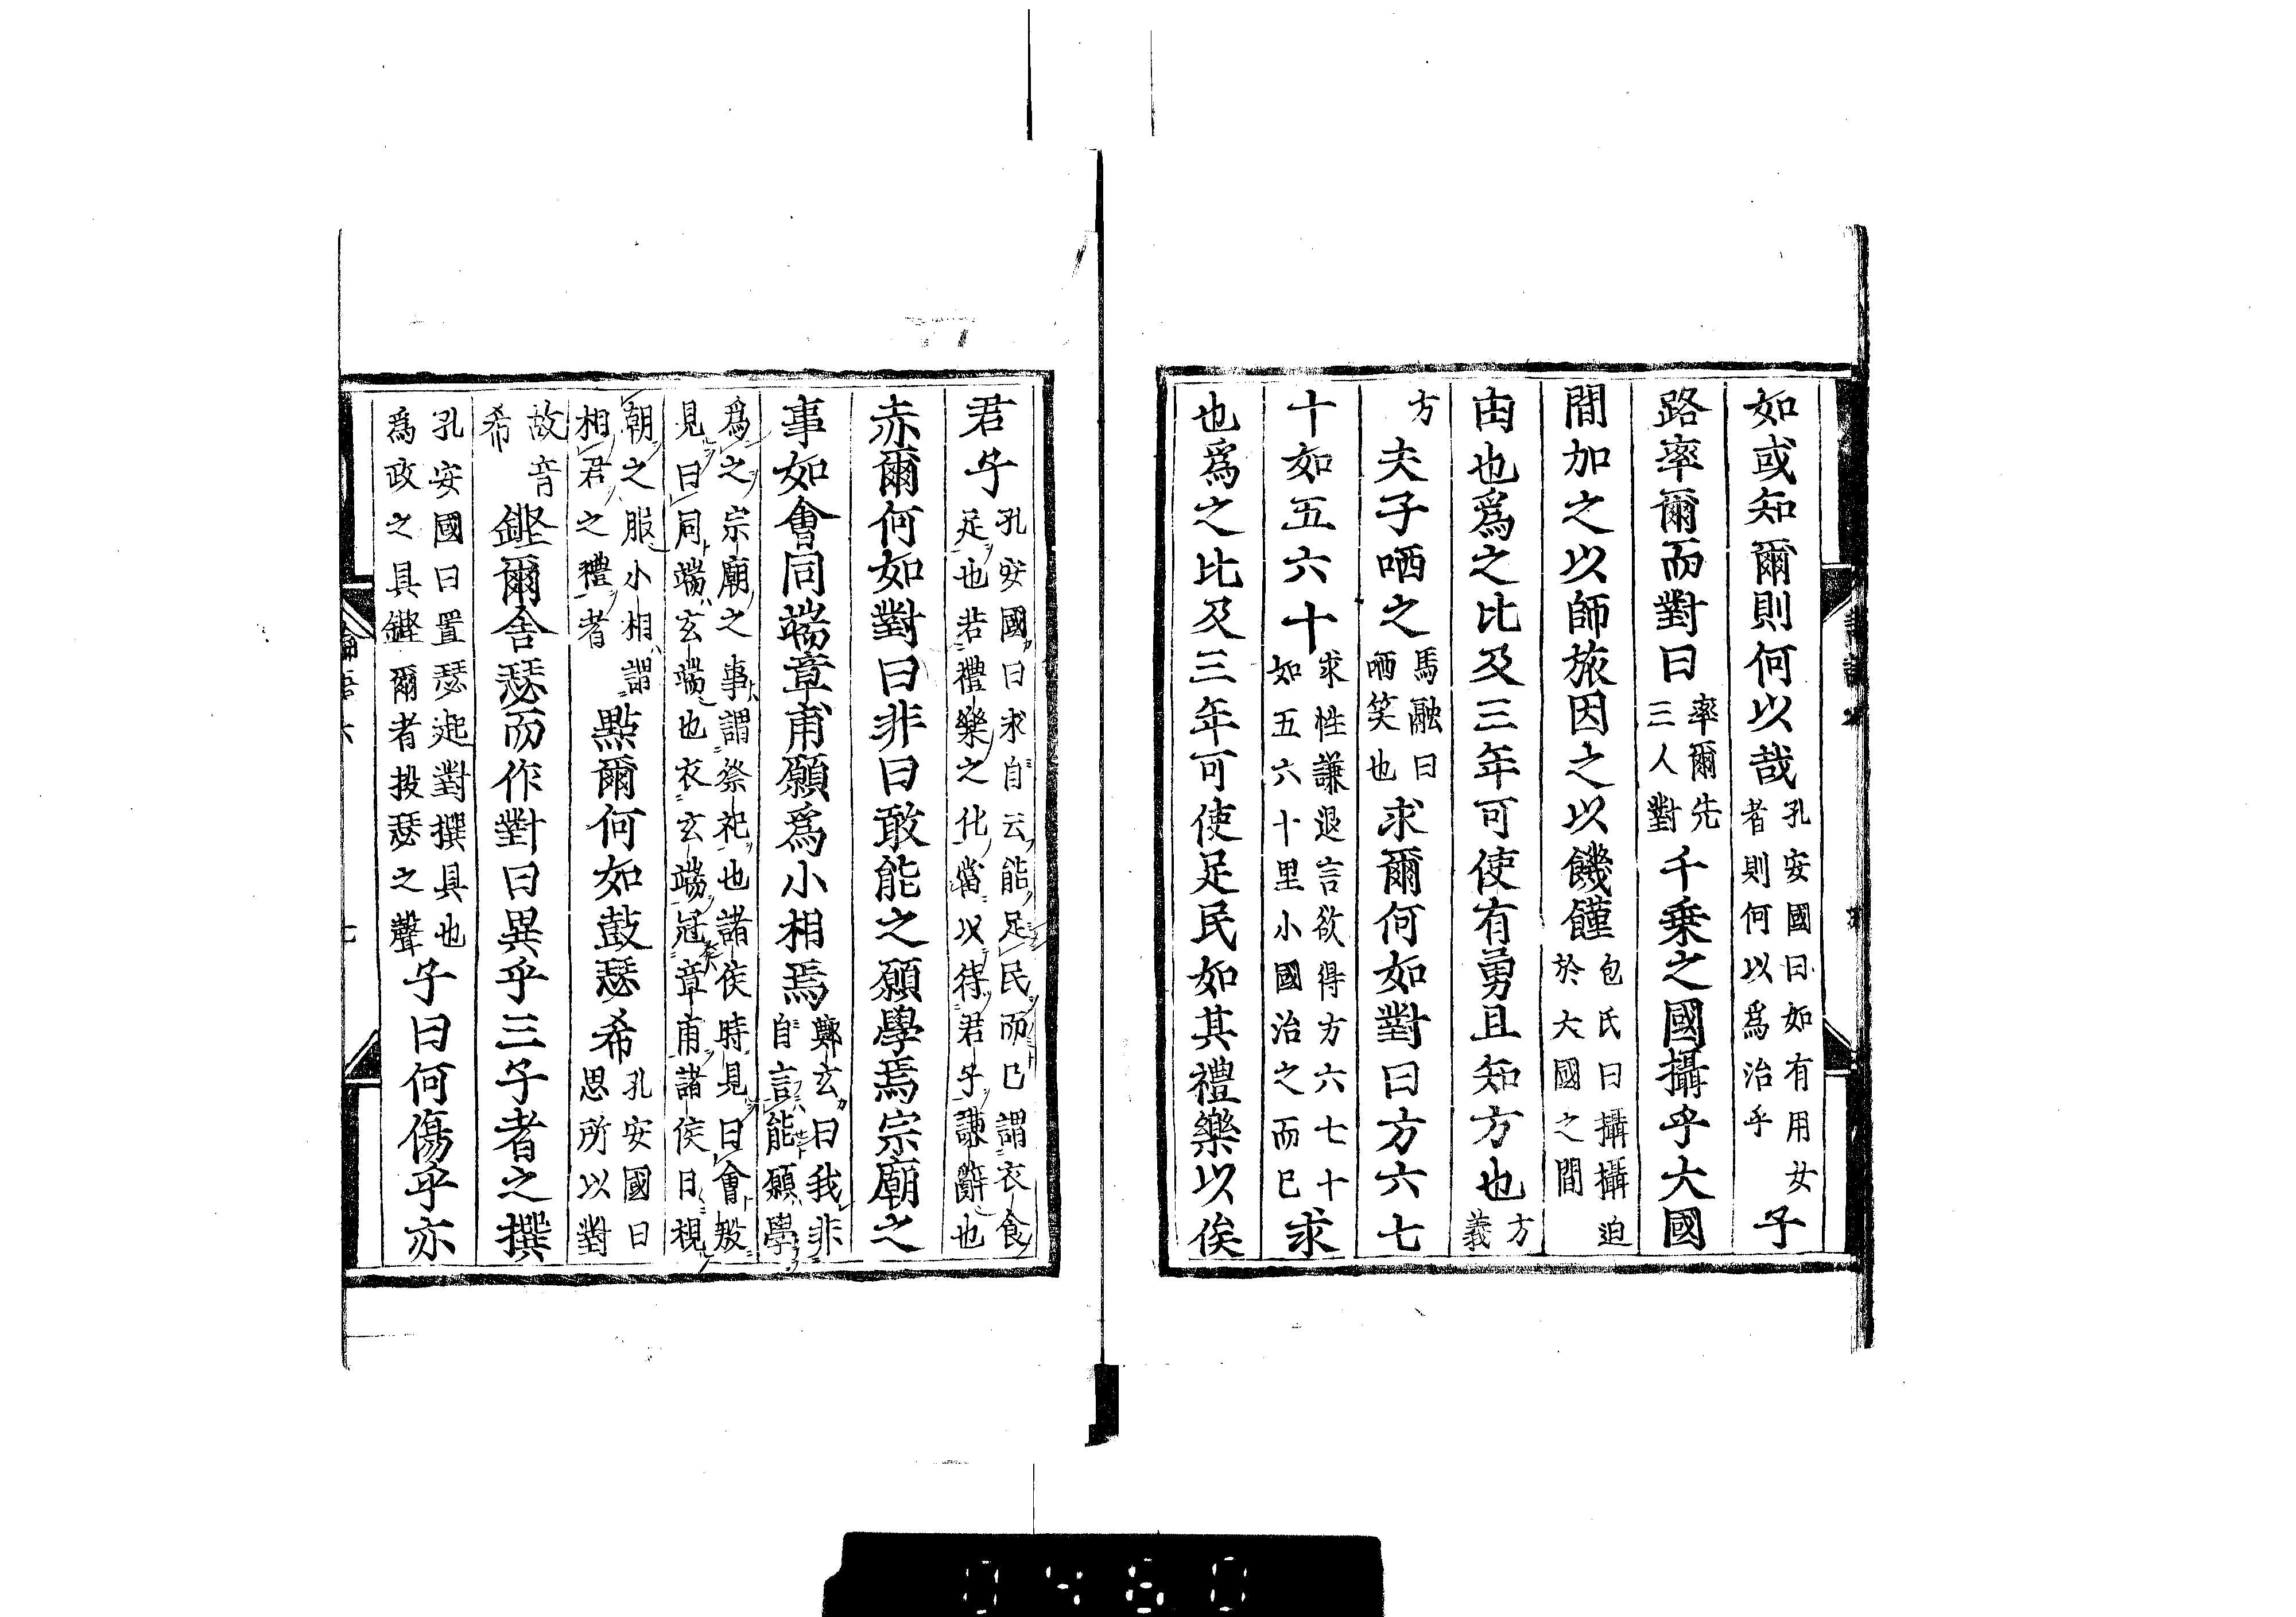 如或知爾則何以哉孔安國曰如有用女者則何以爲治乎子
路率爾而對曰率爾先三人對千乗之國攝乎大國
間加之以師旅因之以饑饉包氏曰攝攝迫於大國之間
由也爲之比及三年可使有勇且知方也方義
方夫子哂之馬融曰哂笑也求爾何如對曰方六七
十如五六十求性謙退言欲得方六七十如五六十里小國治之而已求
也爲之比及三年可使足民如其禮樂以俟
君子孔安國曰求自云能足民而已謂衣食足也若禮樂之化當以待君子謙辭也
赤爾何如對曰非曰敢能之願學焉宗廟之
事如會同端章甫願爲小相焉鄭玄曰我非自言能願學
爲之宗廟之事謂祭祀也諸侯時見曰會殷見曰同端玄端也衣玄端冠章甫諸侯日視
朝之服小相謂相君之禮者點爾何如鼓瑟希孔安國曰思所以對
故音希鏗爾舍瑟而作對曰異乎三子者之撰
孔安國曰置瑟起對撰具也爲政之具鏗爾者投瑟之聲子曰何傷乎亦
論語六
七
0460